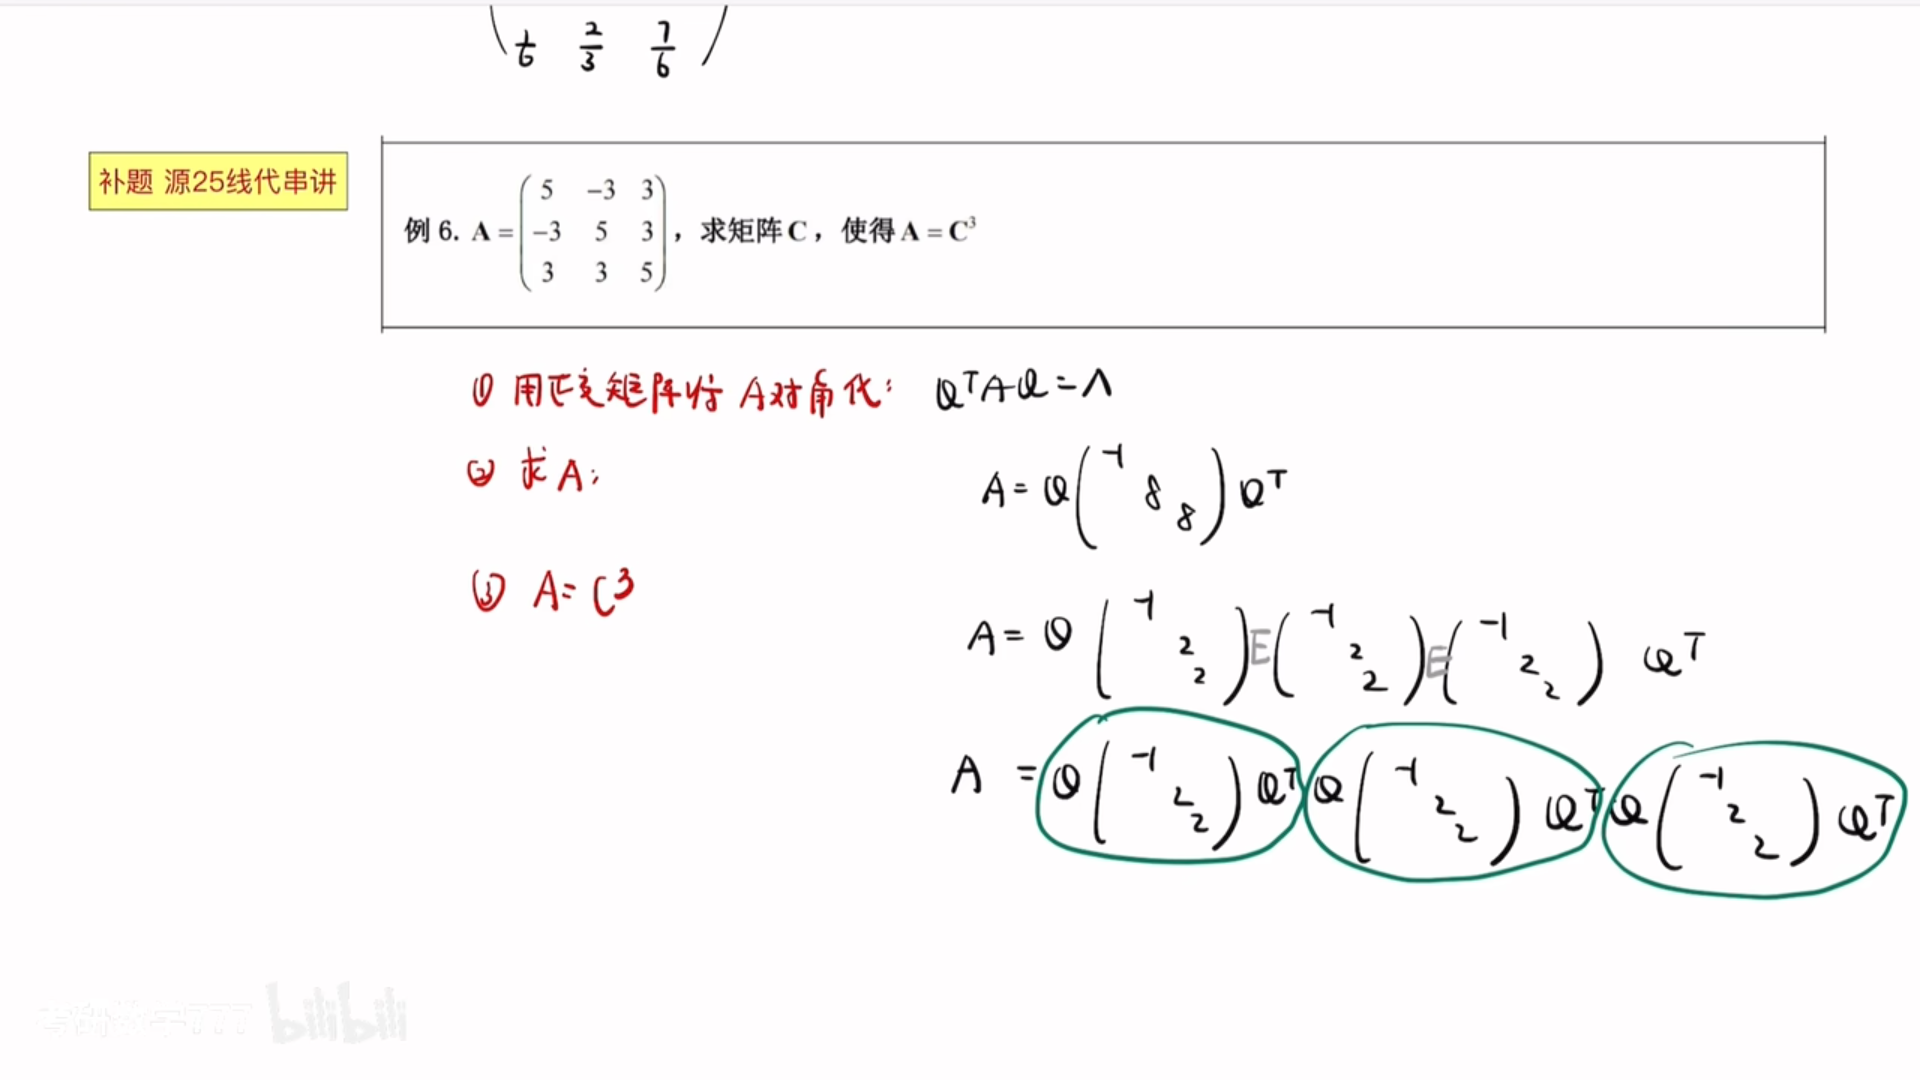 1/6 2/3 7/6
补题 源25线代串讲
5 −3 3
例 6. A = −3 5 3 , 求矩阵 C , 使得 A = C³
3 3 5
① 用正交矩阵将 A对角化: QᵀAQ = Λ
② 求A: A = Q ( -1 8 8 ) Qᵀ
③ A = C³
A = Q ( -1 2 2 ) E ( -1 2 2 ) E ( -1 2 2 ) Qᵀ
A = Q ( -1 2 2 ) Qᵀ Q ( -1 2 2 ) Qᵀ Q ( -1 2 2 ) Qᵀ
考研数学777 bilibili